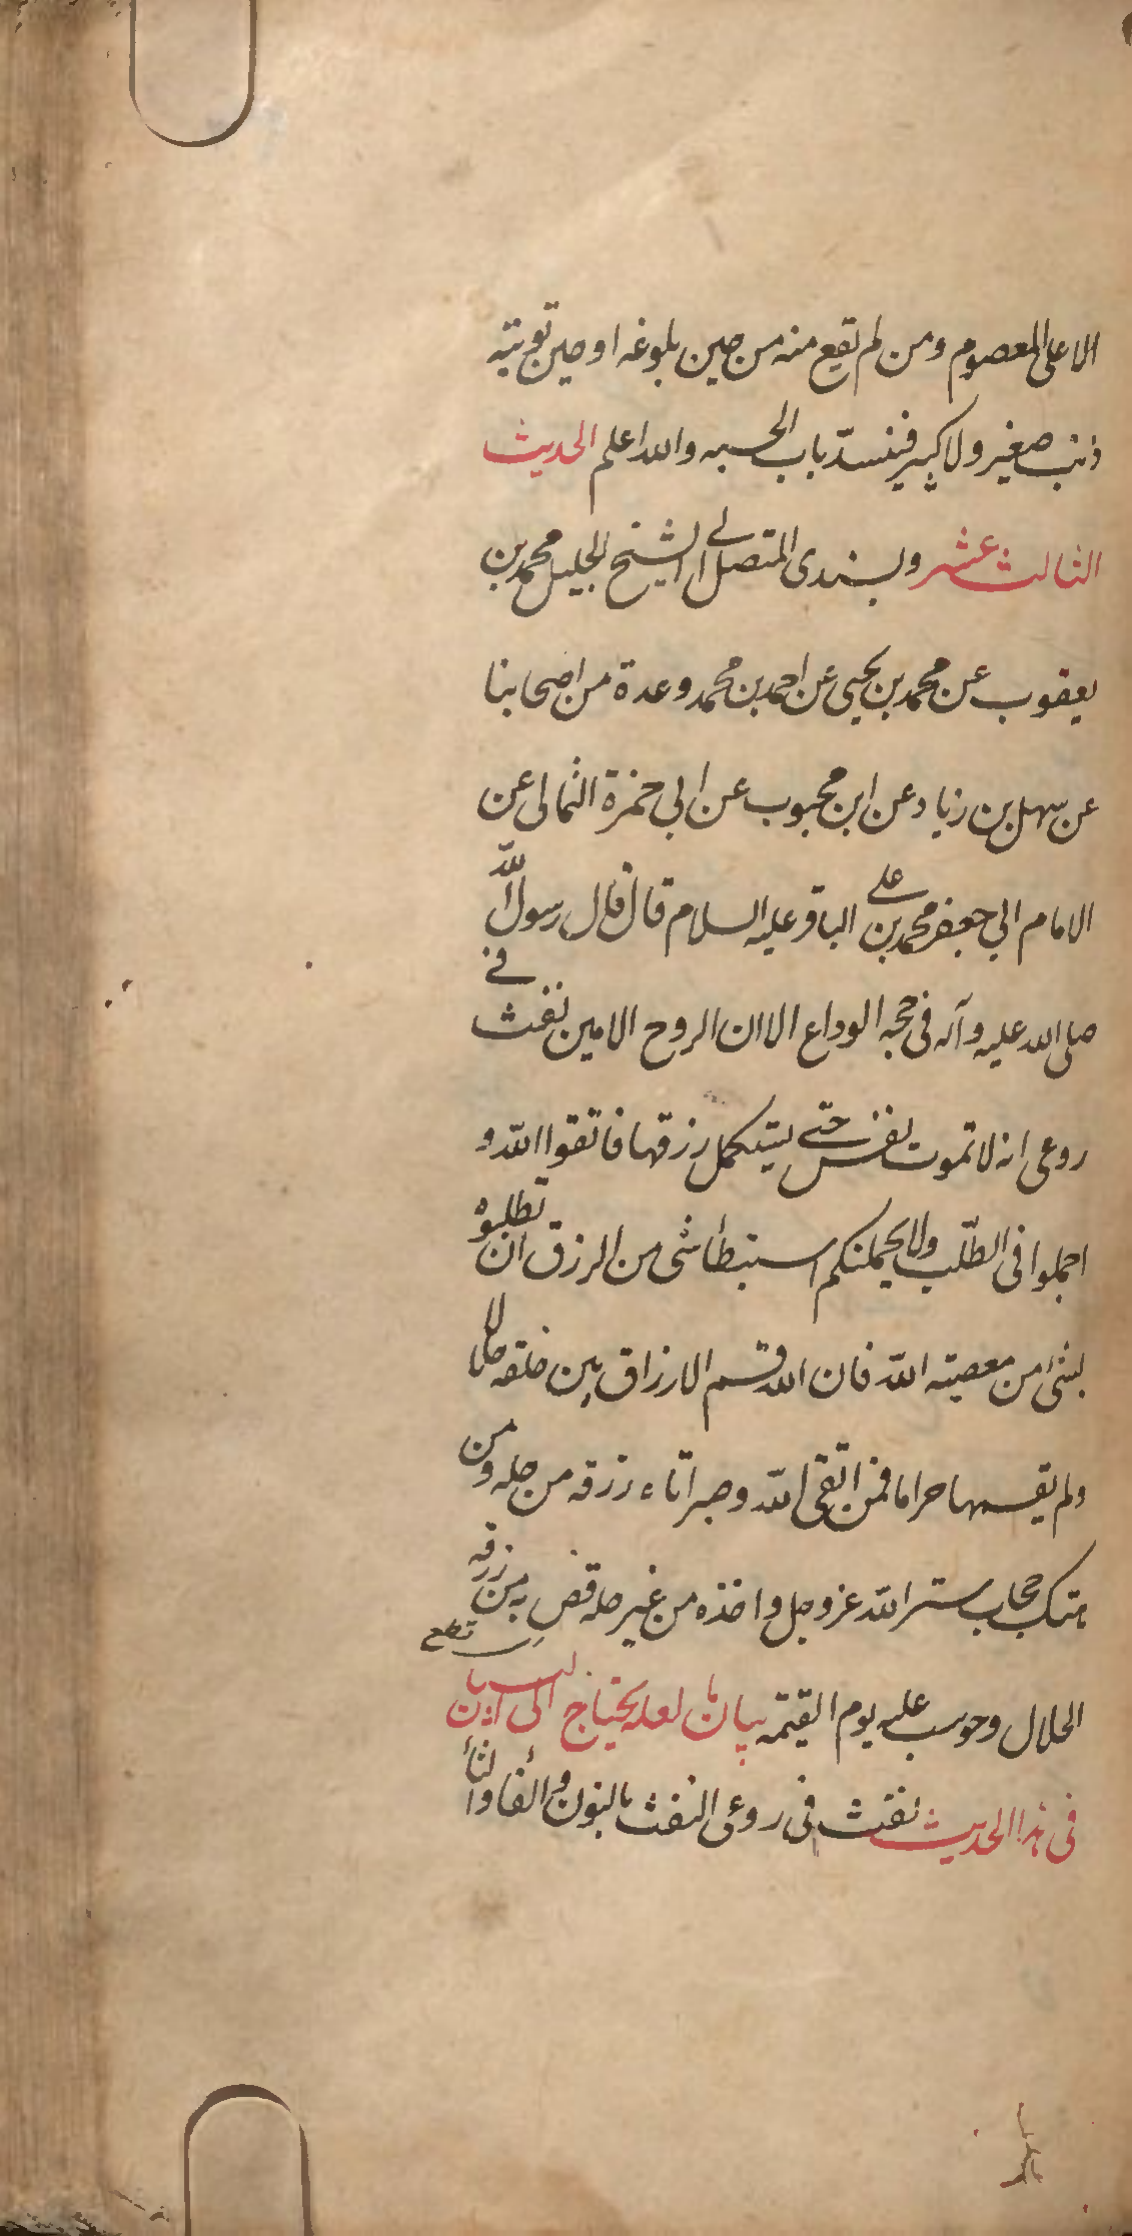 الا على المعصوم ومن لم تقع منه من حين بلوغه او حين توبته
ذنب صغير ولا كبير فينسدّ باب الحسبه والله اعلم الحديث
الثالث عشر وبسندى المتصل الى الشيخ الجليل محمد بن
يعقوب عن محمد بن يحيى عن احمد بن محمد وعدة من اصحابنا
عن سهل بن زياد عن ابن محبوب عن ابى حمزة الثمالى عن
الامام ابي جعفر محمد بن على الباقر عليه السلام قال قال رسول الله
صلى الله عليه وآله فى حجه الوداع الا ان الروح الامين نفث فى
روعى انه لا تموت نفس حتى يستكمل رزقها فاتقوا الله و
اجملوا فى الطلّب ولا يحملنكم استبطأ شى من الرزق ان تطلبوه
بشئ من معصيته الله فان الله قسم الارزاق بين خلقه حلالا
ولم يقسمها حراما فمن اتقى الله وصبر اتاه رزقه من حله ومن
هتك حجاب ستر الله عز وجل واخذه من غير حله قصّ به من رزقه
قطع
الحلال وحوسب عليه يوم القيمة بيان ما لعله يحتاج الى البيان
فى هذا الحديث نفث فى روعى النفث بالنون والفا والثأ